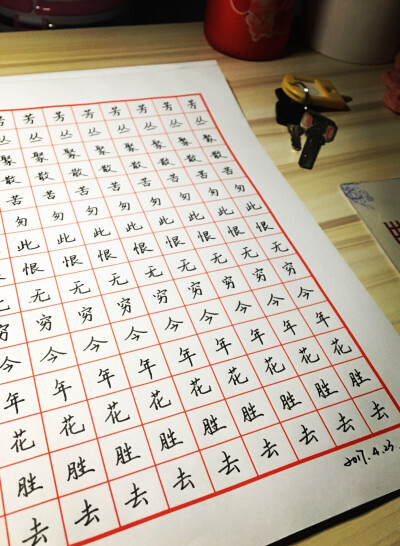 芳芳芳芳芳芳芳
丛丛丛丛丛丛丛
聚聚聚聚聚聚聚聚
散散散散散散散散
苦苦苦苦苦苦苦苦
匆匆匆匆匆匆匆匆
此此此此此此此此
恨恨恨恨恨恨恨恨
无无无无无无无无
穷穷穷穷穷穷穷穷
今今今今今今今今今
年年年年年年年年年
花花花花花花花花花
胜胜胜胜胜胜胜胜胜
去去去去去去去去去
2017.4.23.